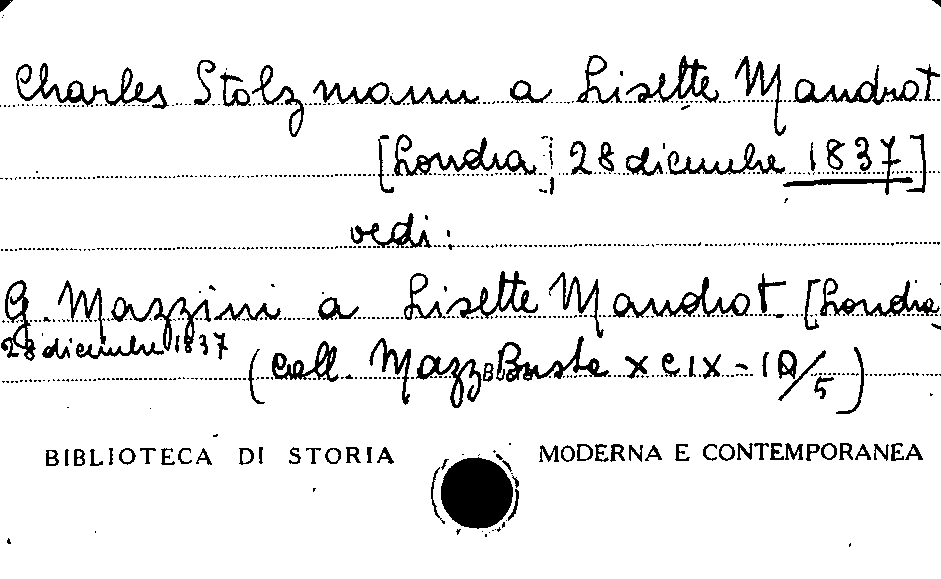 Charles Stolzmann a Lisette Mandrot
[Londra] 28 dicembre 1837]
vedi:
G. Mazzini a Lisette Mandrot. [Londra,
28 dicembre 1837
(Coll. Mazz. Busta XCIX - 1Q/5)
BIBLIOTECA DI STORIA MODERNA E CONTEMPORANEA